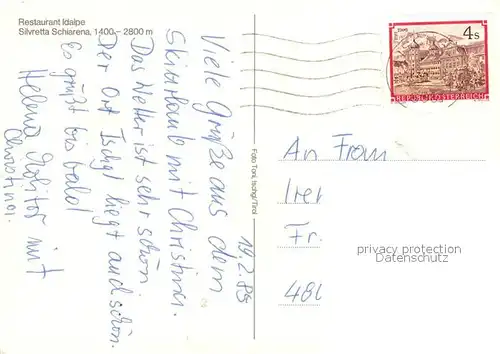 Restaurant Idalpe
Silvretta Schiarena, 1400 – 2800 m
Viele Grüße aus dem
Skiurlaub mit Christina.
Das Wetter ist sehr schön
Der Ort Ischgl liegt auch schön.
Es grüßt bis bald
Helena mit
19.2.85
Foto Toni, Ischgl/Tirol
4 s
REPUBLIK ÖSTERREICH
An Frau
Irer
Fr.
privacy protection
Datenschutz
480